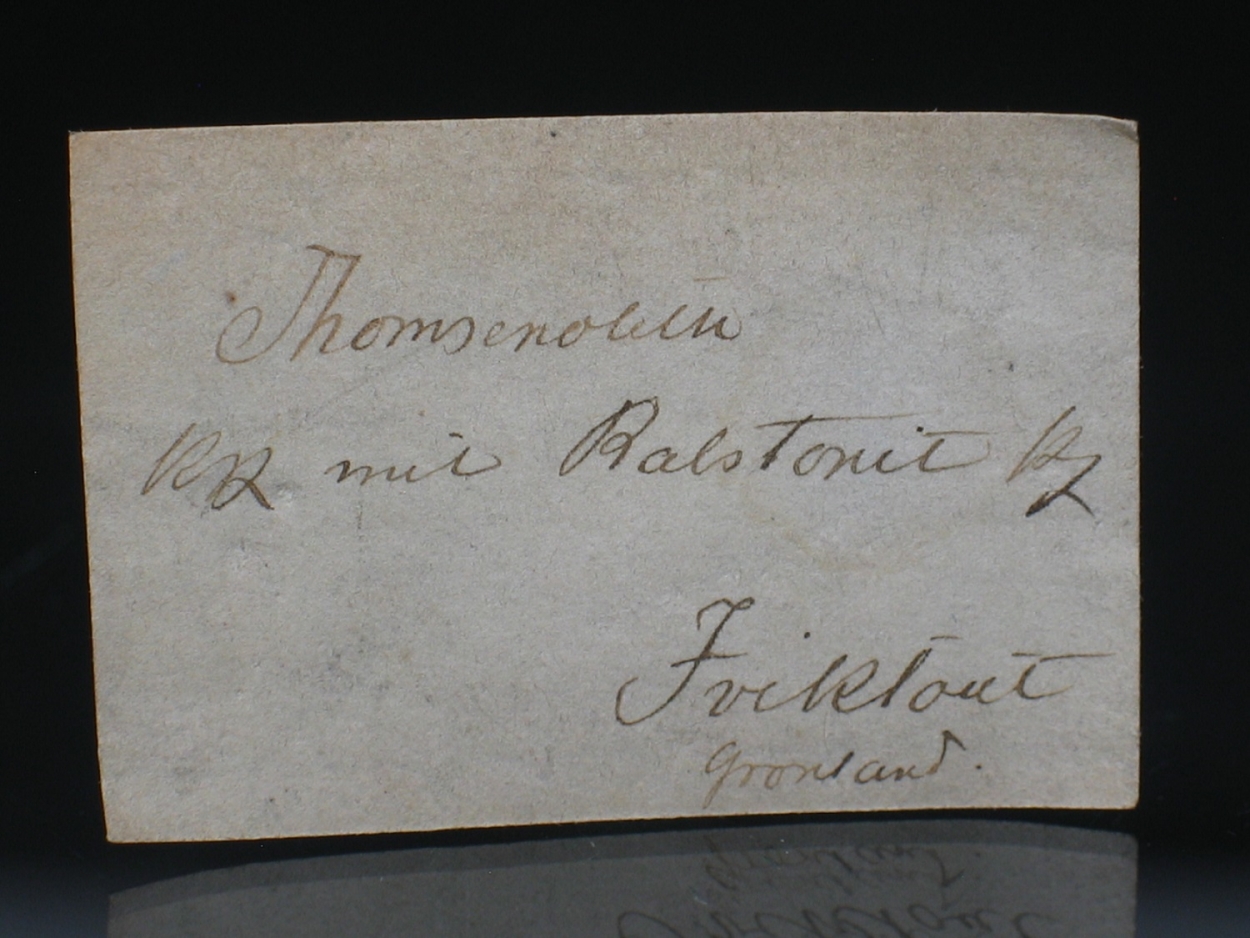 Thomsenolith
RR mit Ralstonit R
Iviktout
Gronland.